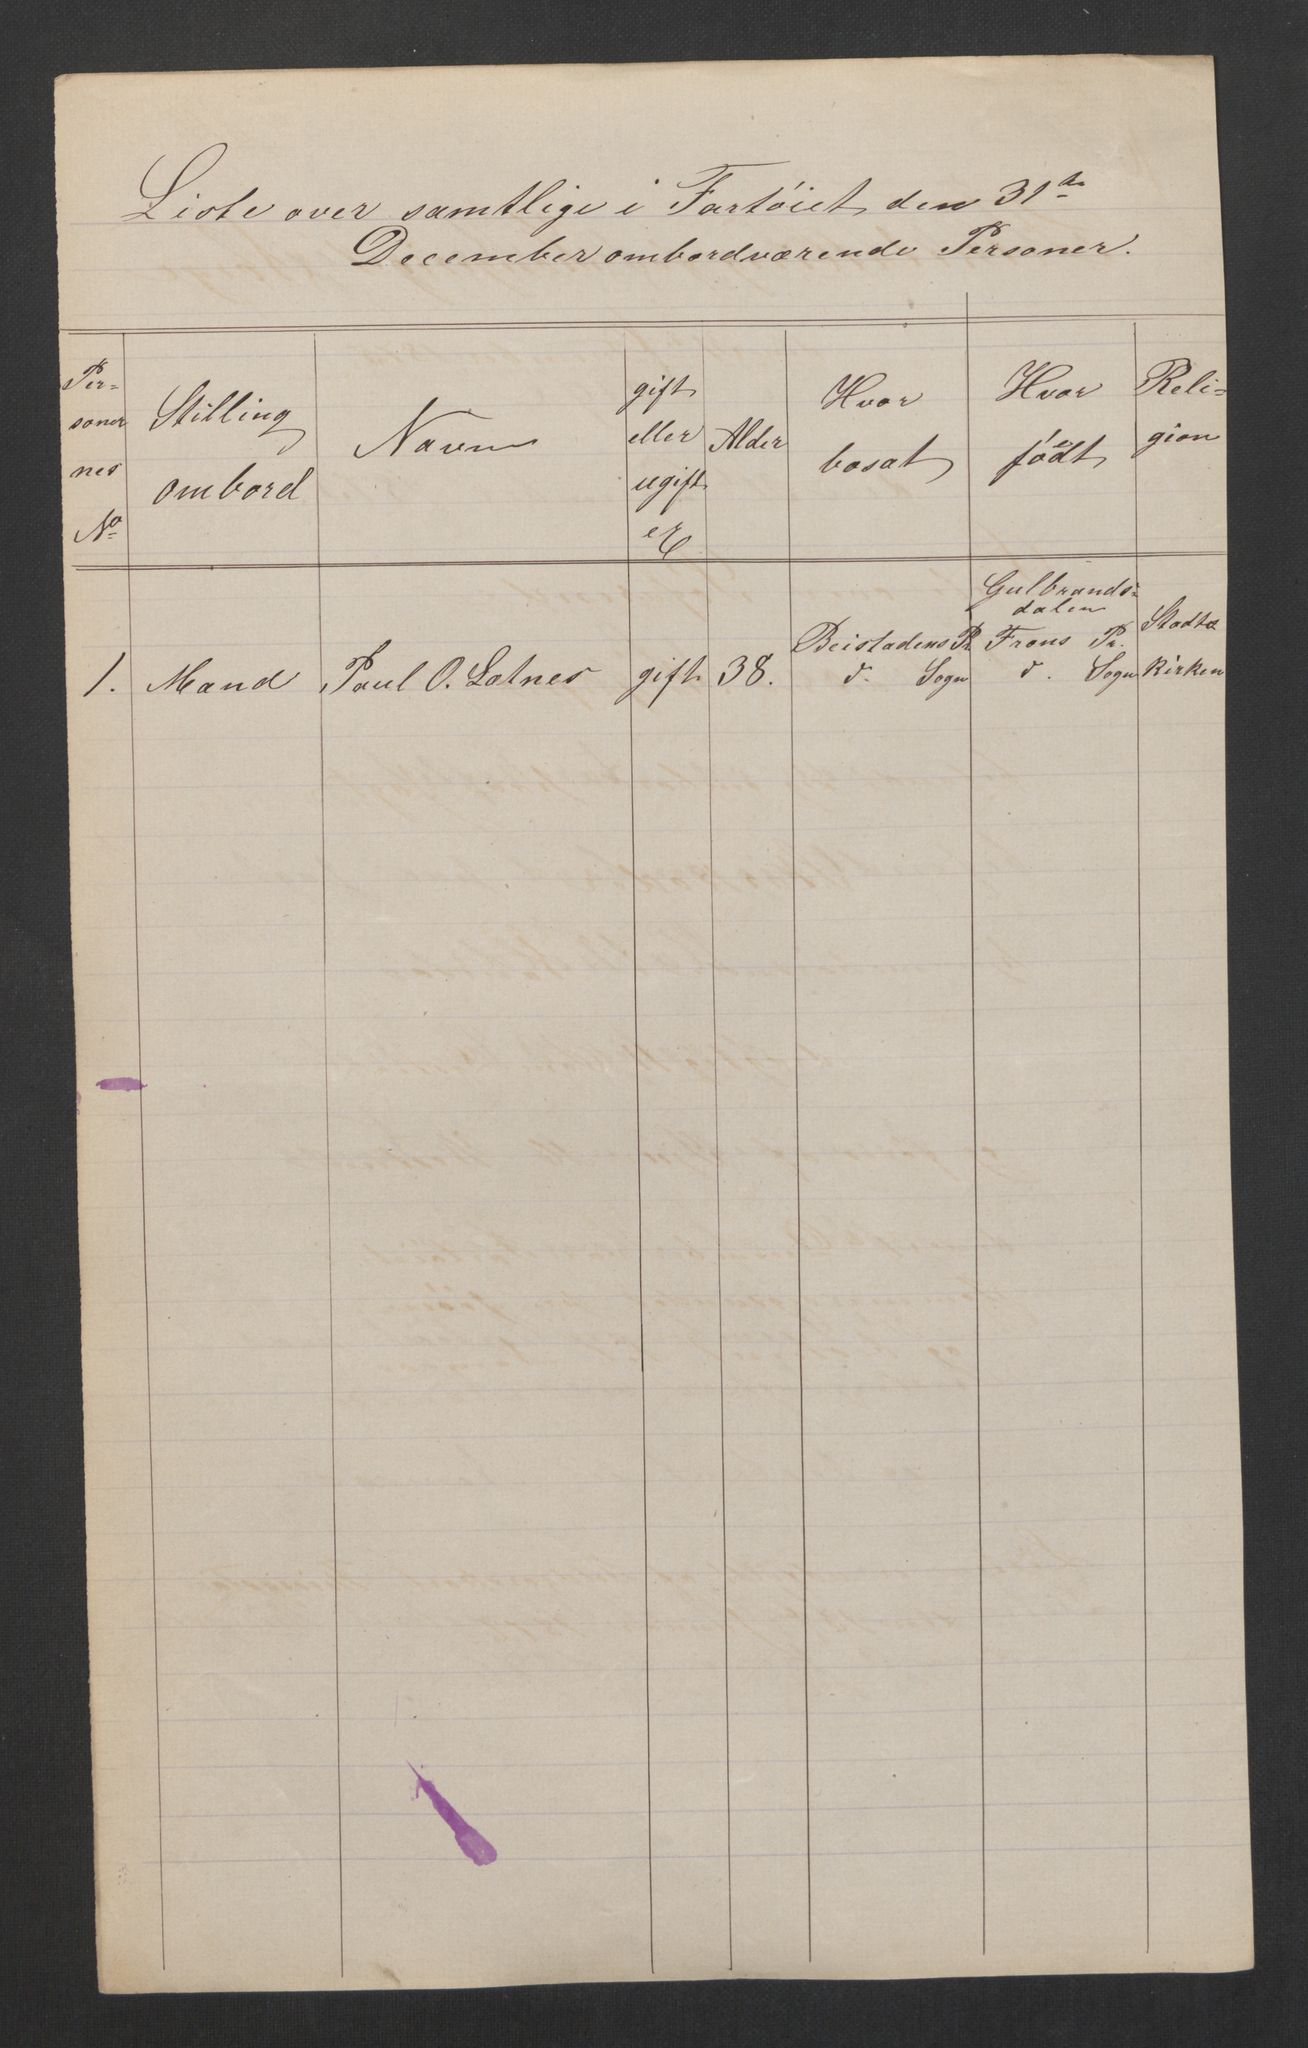 Liste over samtlige i Fartöiet den 31te
December ombordværende Personer.
Per-
soner
nes
No
Stilling
ombord
Navn
gift
eller
ugift
Alder
Hvor
bosat
Hvor
födt
Reli-
gion
1. Mand Paul O. Lotnes gift 38.
Beistadens Pr
d. Sogn
Gulbrands-
dalen
Frons Pr.
d. Sogn
Stadts
kirken